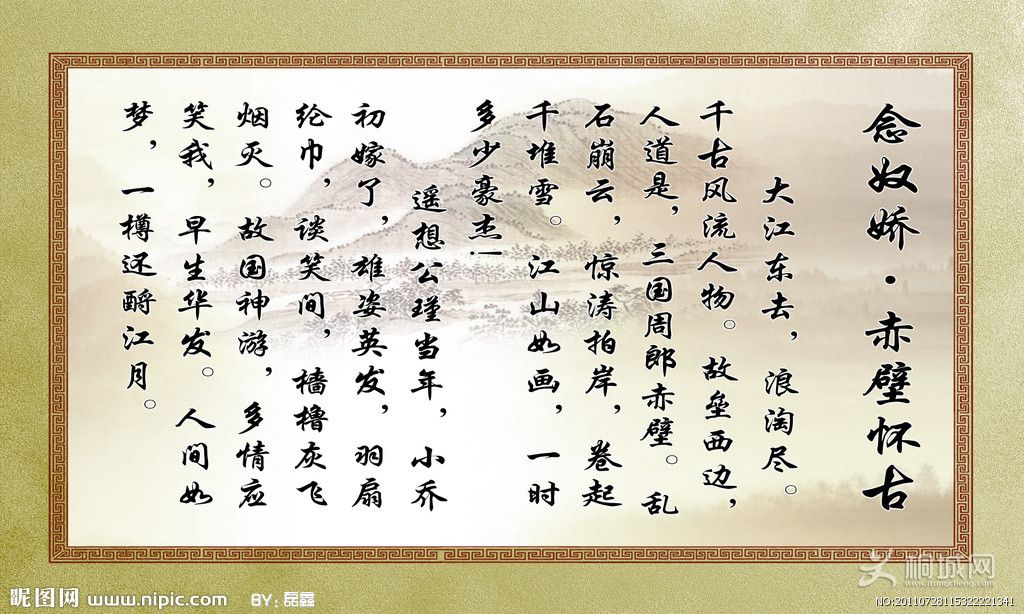 念奴娇·赤壁怀古
大江东去，浪淘尽。
千古风流人物。故垒西边，
人道是，三国周郎赤壁。乱
石崩云，惊涛拍岸，卷起
千堆雪。江山如画，一时
多少豪杰！
遥想公瑾当年，小乔
初嫁了，雄姿英发，羽扇
纶巾，谈笑间，樯橹灰飞
烟灭。故国神游，多情应
笑我，早生华发。人间如
梦，一樽还酹江月。
昵图网 www.nipic.com BY：磊鑫
桐城网
www.itongcheng.com
NO:20110728115322221341